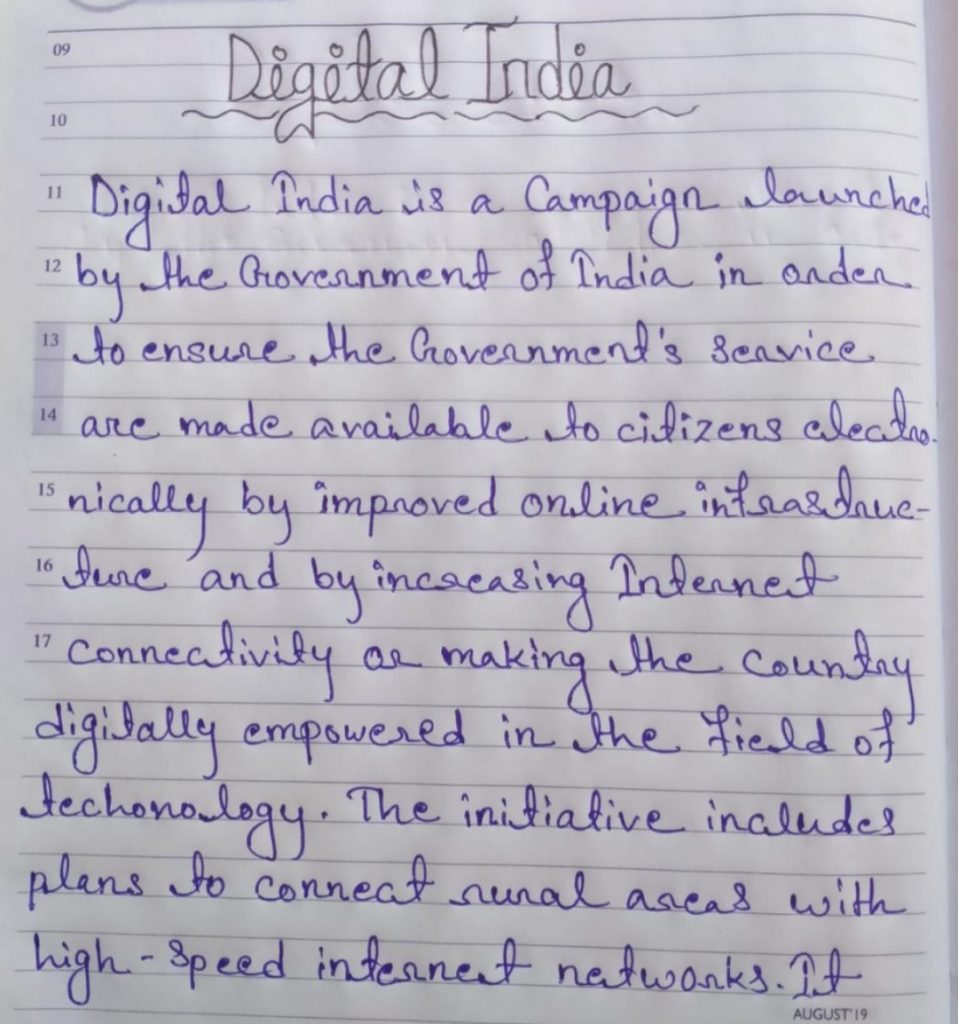 09
Digital India
10
11 Digital India is a Campaign launched
12 by the Government of India in order
13 to ensure the Government's service
14 are made available to citizens electro-
15 nically by improved online infrastruc-
16 ture and by increasing Internet
17 connectivity or making the country
digitally empowered in the field of
techonology. The initiative includes
plans to connect rural areas with
high-speed internet networks. It
AUGUST'19